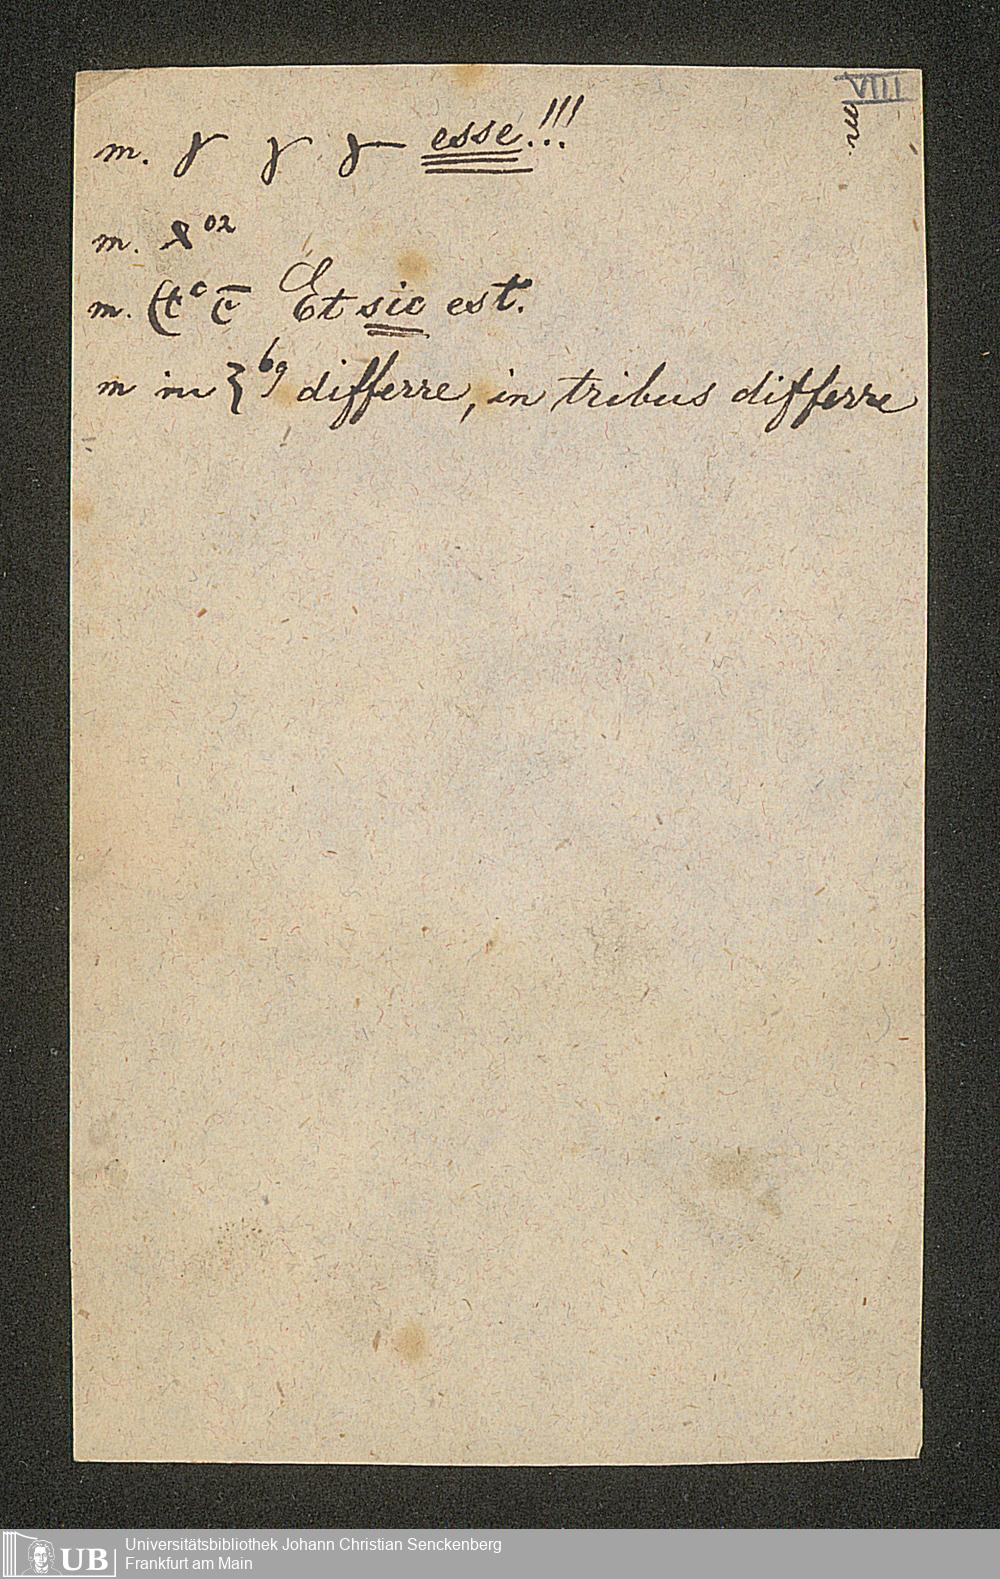 VIII
m.
m. γ γ γ esse!!!
m. 02
m. Et sic est.
m in differre, in tribus differre
UB Universitätsbibliothek Johann Christian Senckenberg
Frankfurt am Main